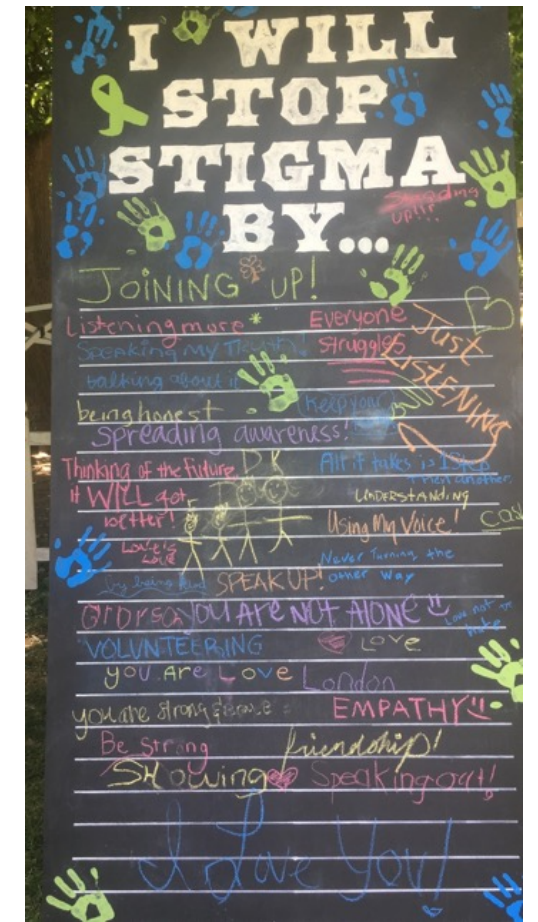 I WILL
STOP
STIGMA
BY...
Standing
up!!!
JOINING UP!
Listening more * Everyone
struggles
Just
LISTENING
Speaking My Truth!
talking about it
being honest
(Keep your
Spreading awareness!
Thinking of the Future
it WILL get
better!
All it takes is 1 Step
then another.
UNDERSTANDING
Using My Voice!
Love is
Love
Never Turning the
other way
by being kind SPEAK UP!
YOU ARE NOT ALONE
Love not
hate
VOLUNTEERING LOVE
you Are Love London
you are strong & brave EMPATHY
Be strong friendship!
SHOWING Speaking out!
I Love You!